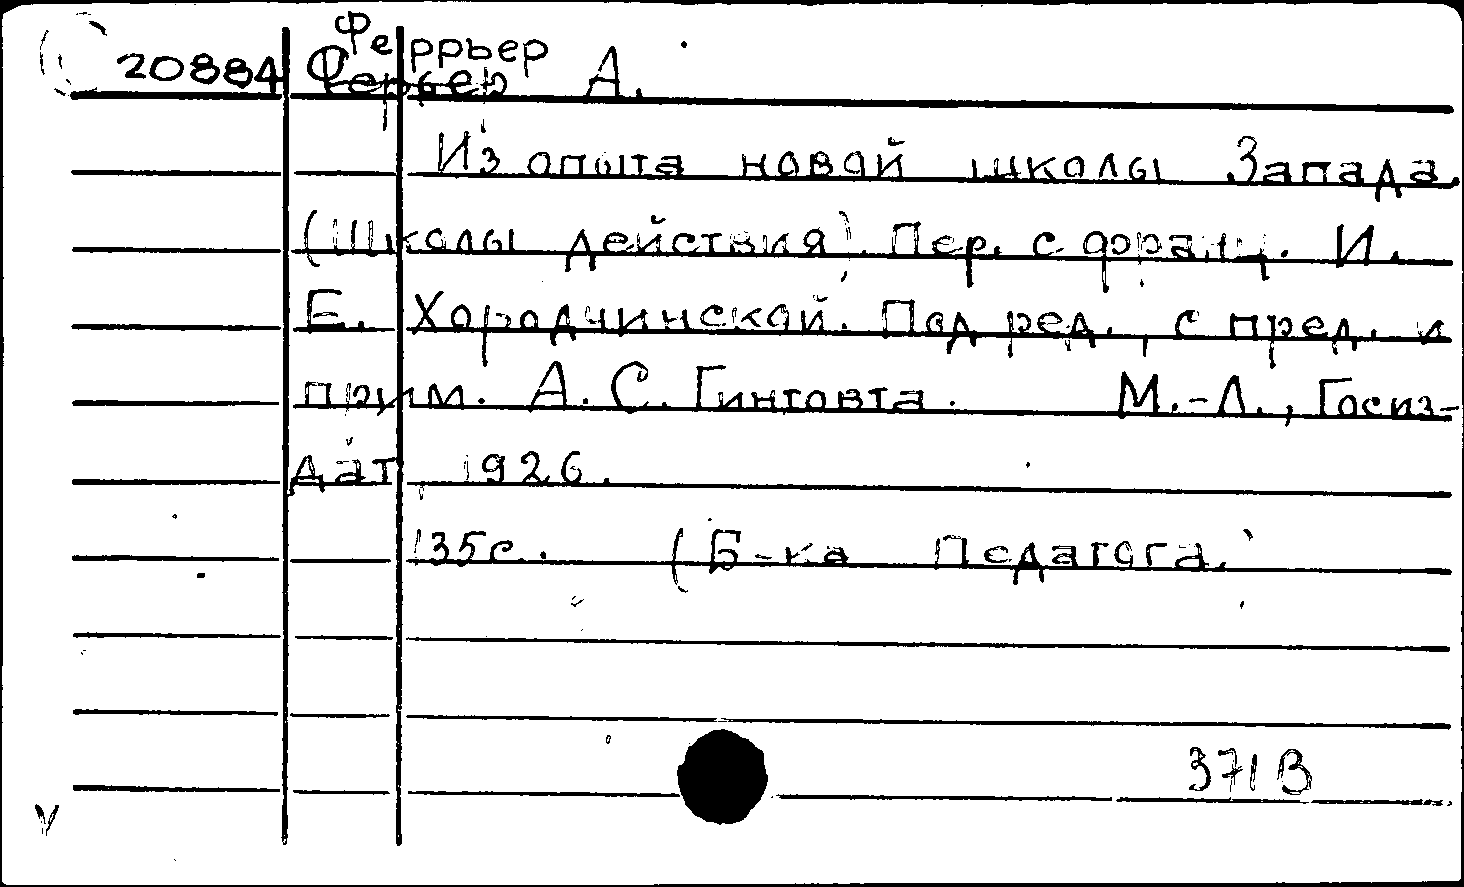 Феррьер
20884 Ферьер А.
Из опыта новой школы Запада.
(Школы действия). Пер. с франц. И.
Е. Хородчинской. Под ред., с пред. и
прим. А. С. Гинтовта. М.-Л., Госиз-
дат, 1926.
135с. (Б-ка Педагога.)
371В
V